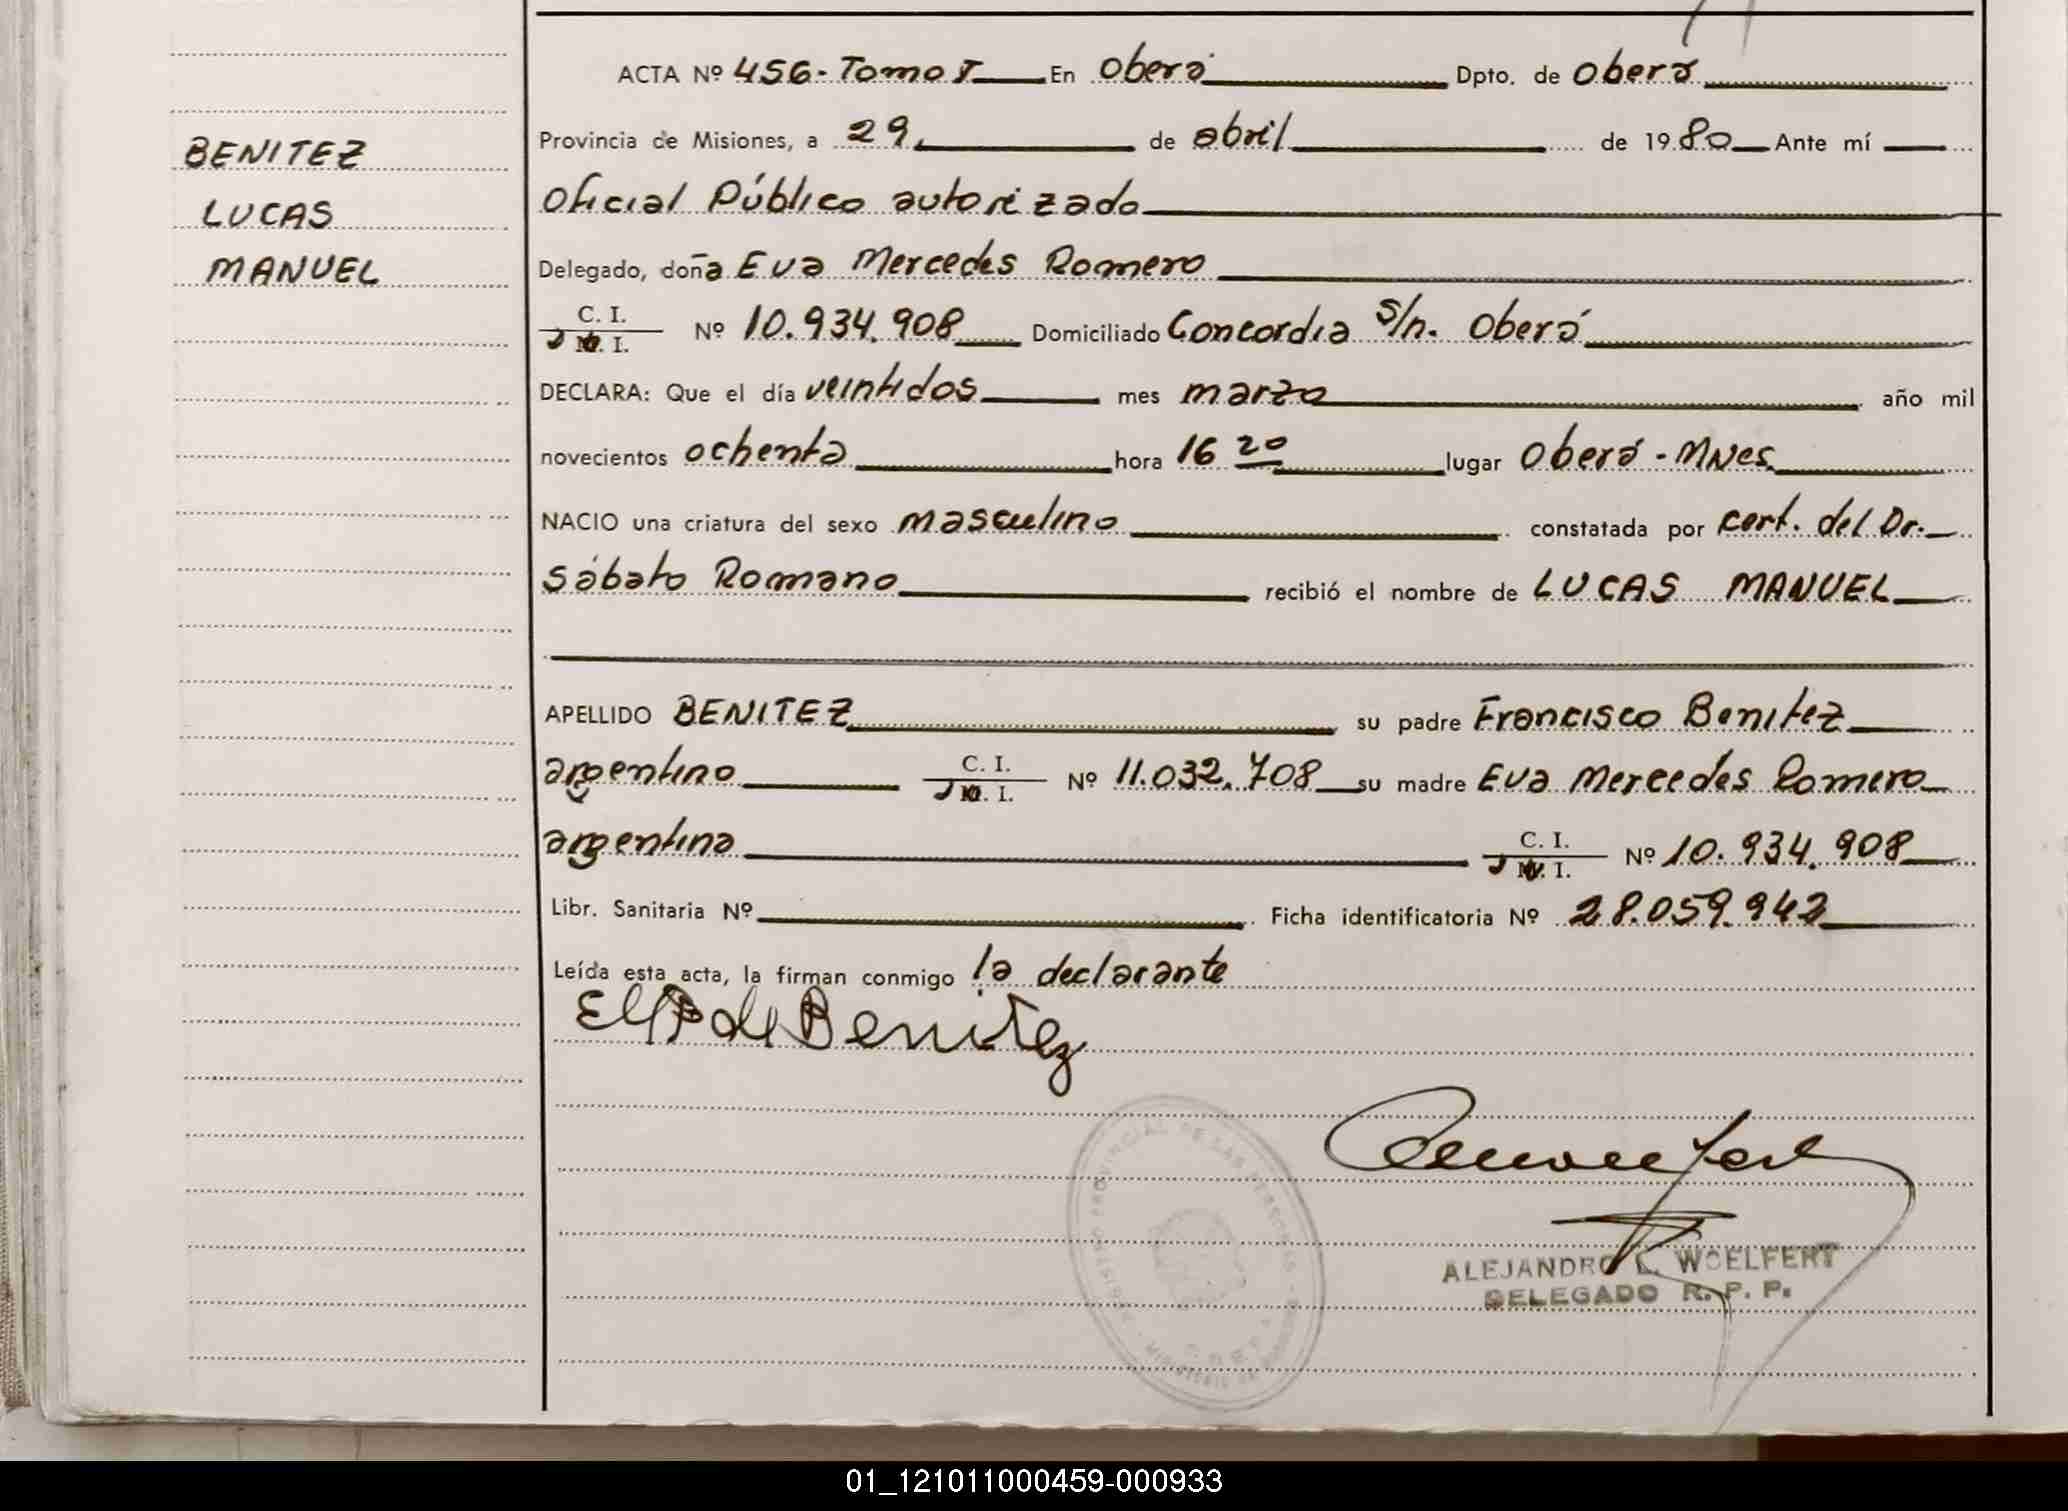 ACTA Nº 456- Tomo I En Oberá Dpto. de Oberá
Provincia de Misiones, a 29, de abril de 1980 Ante mí
BENITEZ
LUCAS
MANUEL
Oficial Público autorizado
Delegado, doña Eva Mercedes Romero
C. I.
Nº 10.934.908 Domiciliado Concordia s/n. Oberá
DECLARA: Que el día veintidos mes marzo año mil
novecientos ochenta hora 16 20 lugar Oberá - Mnes.
NACIO una criatura del sexo masculino constatada por cert. del Dr.
Sábato Romano recibió el nombre de LUCAS MANUEL
APELLIDO BENITEZ su padre Francisco Benitez
argentino C. I. Nº 11.032.708 su madre Eva Mercedes Romero
argentina C. I. Nº 10.934.908
Libr. Sanitaria Nº Ficha identificatoria Nº 28.059.942
Leída esta acta, la firman conmigo la declarante
de Benitez
ALEJANDRO L. WOELFERT
DELEGADO R. P. P.
REGISTRO PROVINCIAL DE LAS PERSONAS
01_121011000459-000933